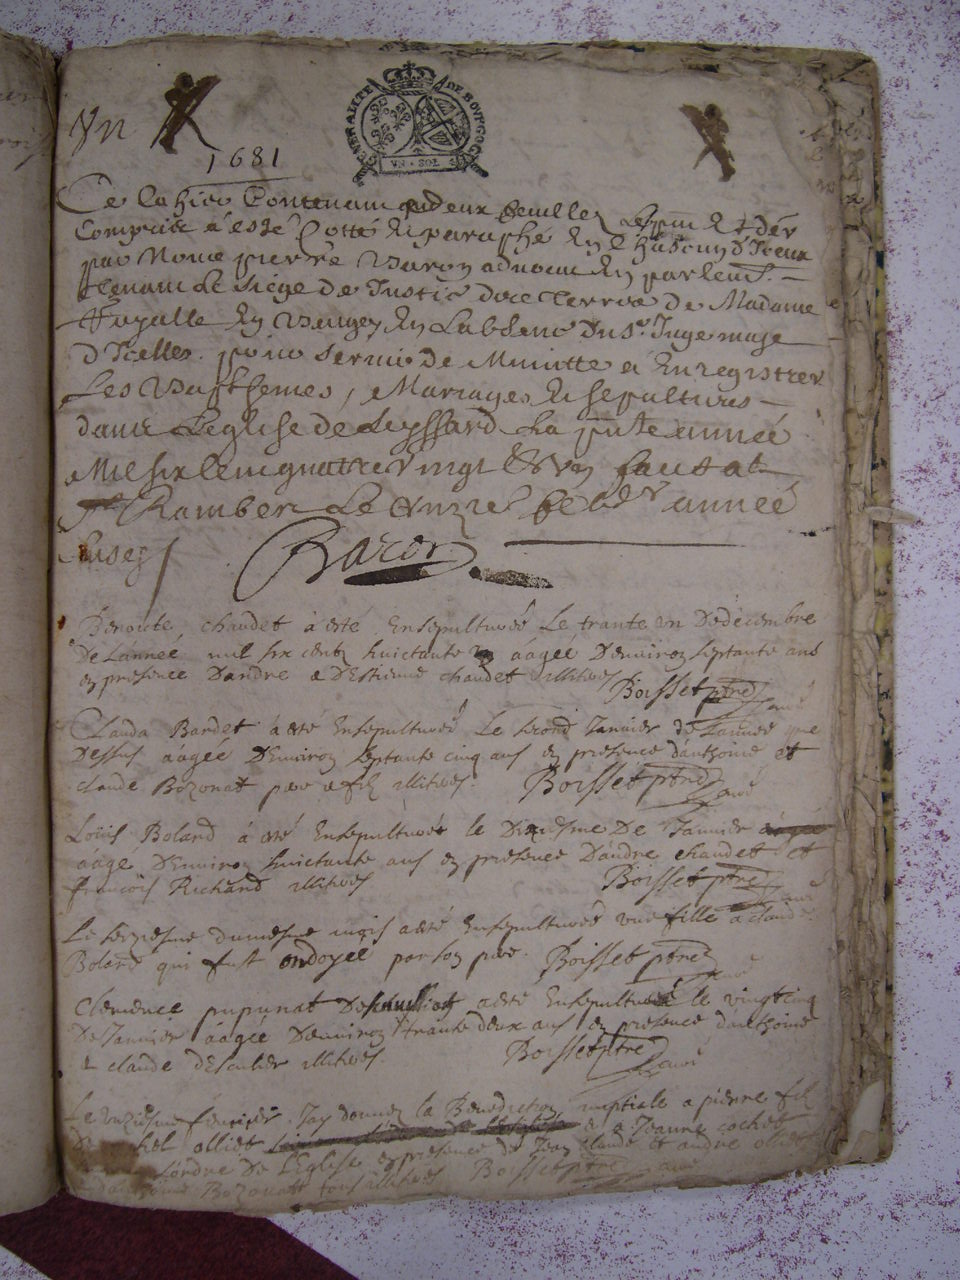 GENERALITE DE BOURGOGNE
VN · SOL
Vn
1681
Ce Cahier Contenant deux feuilles
Compris à esté Cotté et paraphé En Chascun d'Iceux
par Nous pierre Baron advocat En parlem^t.
tenant Le siège de Justice de Madame
En Beugey En Labsence du S^r. Juge mage
d'Icelles. pour servir de Minutte à Enregistrer
Les Bapthemes, Mariages et sepultures
dans L'eglise de Leyssard La pnte année
Mil six cent quattre vingt et Vn fait a
S^t Rambert Le année
susd
Baron
Benoite chaudet à esté Ensepulturéé Le trante un De décembre
De Lannee mil six cents huictante aagee Denviron septante ans
en presence Dandre & D'Estienne chaudet illitérés Boisset ptre
curé
Clauda Bardet à esté Ensepulturéé Le second Janvier de Lannee que
Dessus aàgée Denviron septante cinq ans en presence danthoine et
claude Bozonat pere & fils illitérés. Boisset ptre
curé
Loüis Boland à esté Ensepulturéé le Dixiesme De Janvier
aagé Denviron huictante ans en presence Dandre chaudet et
françois Richard illitérés Boisset ptre
curé
Le seziesme du mesme mois a esté Ensepulturéé une fille a claude
Boland qui fust ondoyée par son pere. Boisset ptre
curé
Clemence pupunat a esté Ensepulturéé le vingt cinq
De Janvier aagée Denviron trante deux ans en presence danthoine
& claude illitérés. Boisset ptre
curé
Le unziesme fevrier Jay donnez la Benediction nuptiale a pierre fils
alliod & a Jeanne cochet
Lordre De L'Eglise en presence de Jean claude et andre
Bozonat tous illitérés Boisset ptre curé